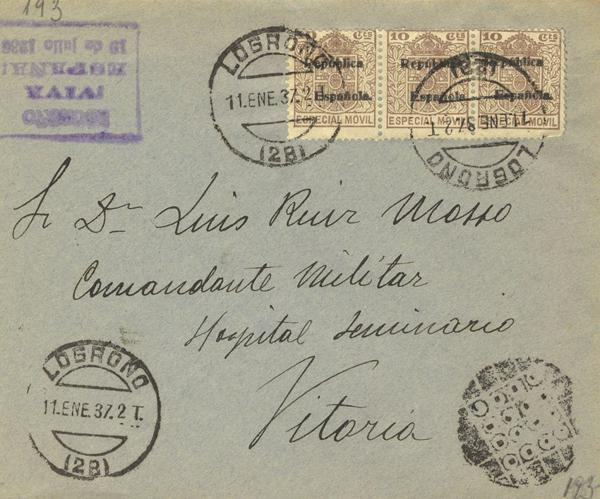 193
LOGROÑO
11.ENE.37.2T.
(2B)
10 Cts 10 Cts 10 Cts
República República República
Española. Española. Española.
ESPECIAL MÓVIL ESPECIAL MÓVIL ESPECIAL MÓVIL
LOGROÑO
11.ENE.37.2T.
(2B)
¡VIVA
ESPAÑA!
19 de julio 1936
Sr Dn Luis Ruiz Mosso
Comandante Militar
Hospital Seminario
Vitoria
LOGROÑO
11.ENE.37.2T.
(2B)
193